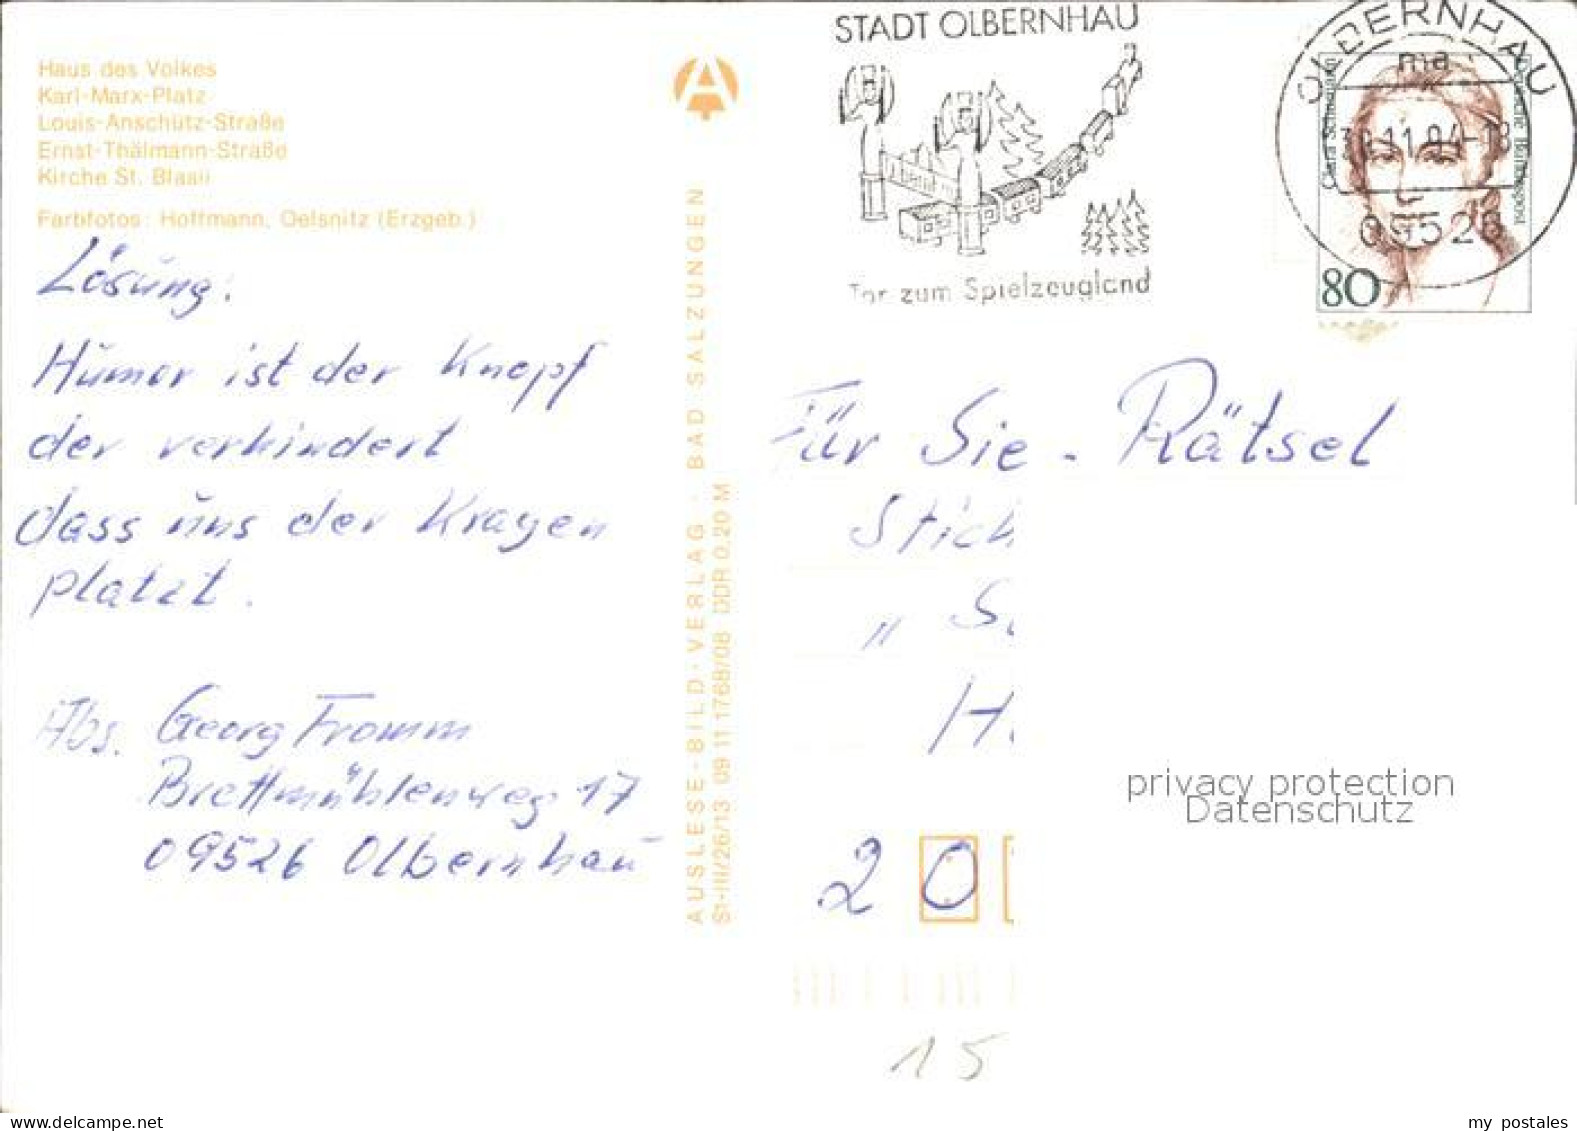 Haus des Volkes
Karl-Marx-Platz
Louis-Anschütz-Straße
Ernst-Thälmann-Straße
Kirche St. Blasii
Farbfotos: Hoffmann, Oelsnitz (Erzgeb.)
Lösung:
Humor ist der Knopf
der verhindert
dass uns der Kragen
platzt.
Abs. Georg Fromm
Brettmühlenweg 17
09526 Olbernhau
AUSLESE-BILD-VERLAG · BAD SALZUNGEN
St-III/26/13 09 11 1768/08 DDR 0,20 M
STADT OLBERNHAU
Tor zum Spielzeugland
OLBERNHAU
ma
11.94-18
09526
Clara Schumann
Deutsche Bundespost
80
Für Sie - Rätsel
Stich
" S
H
2 0
15
privacy protection
Datenschutz
my postales